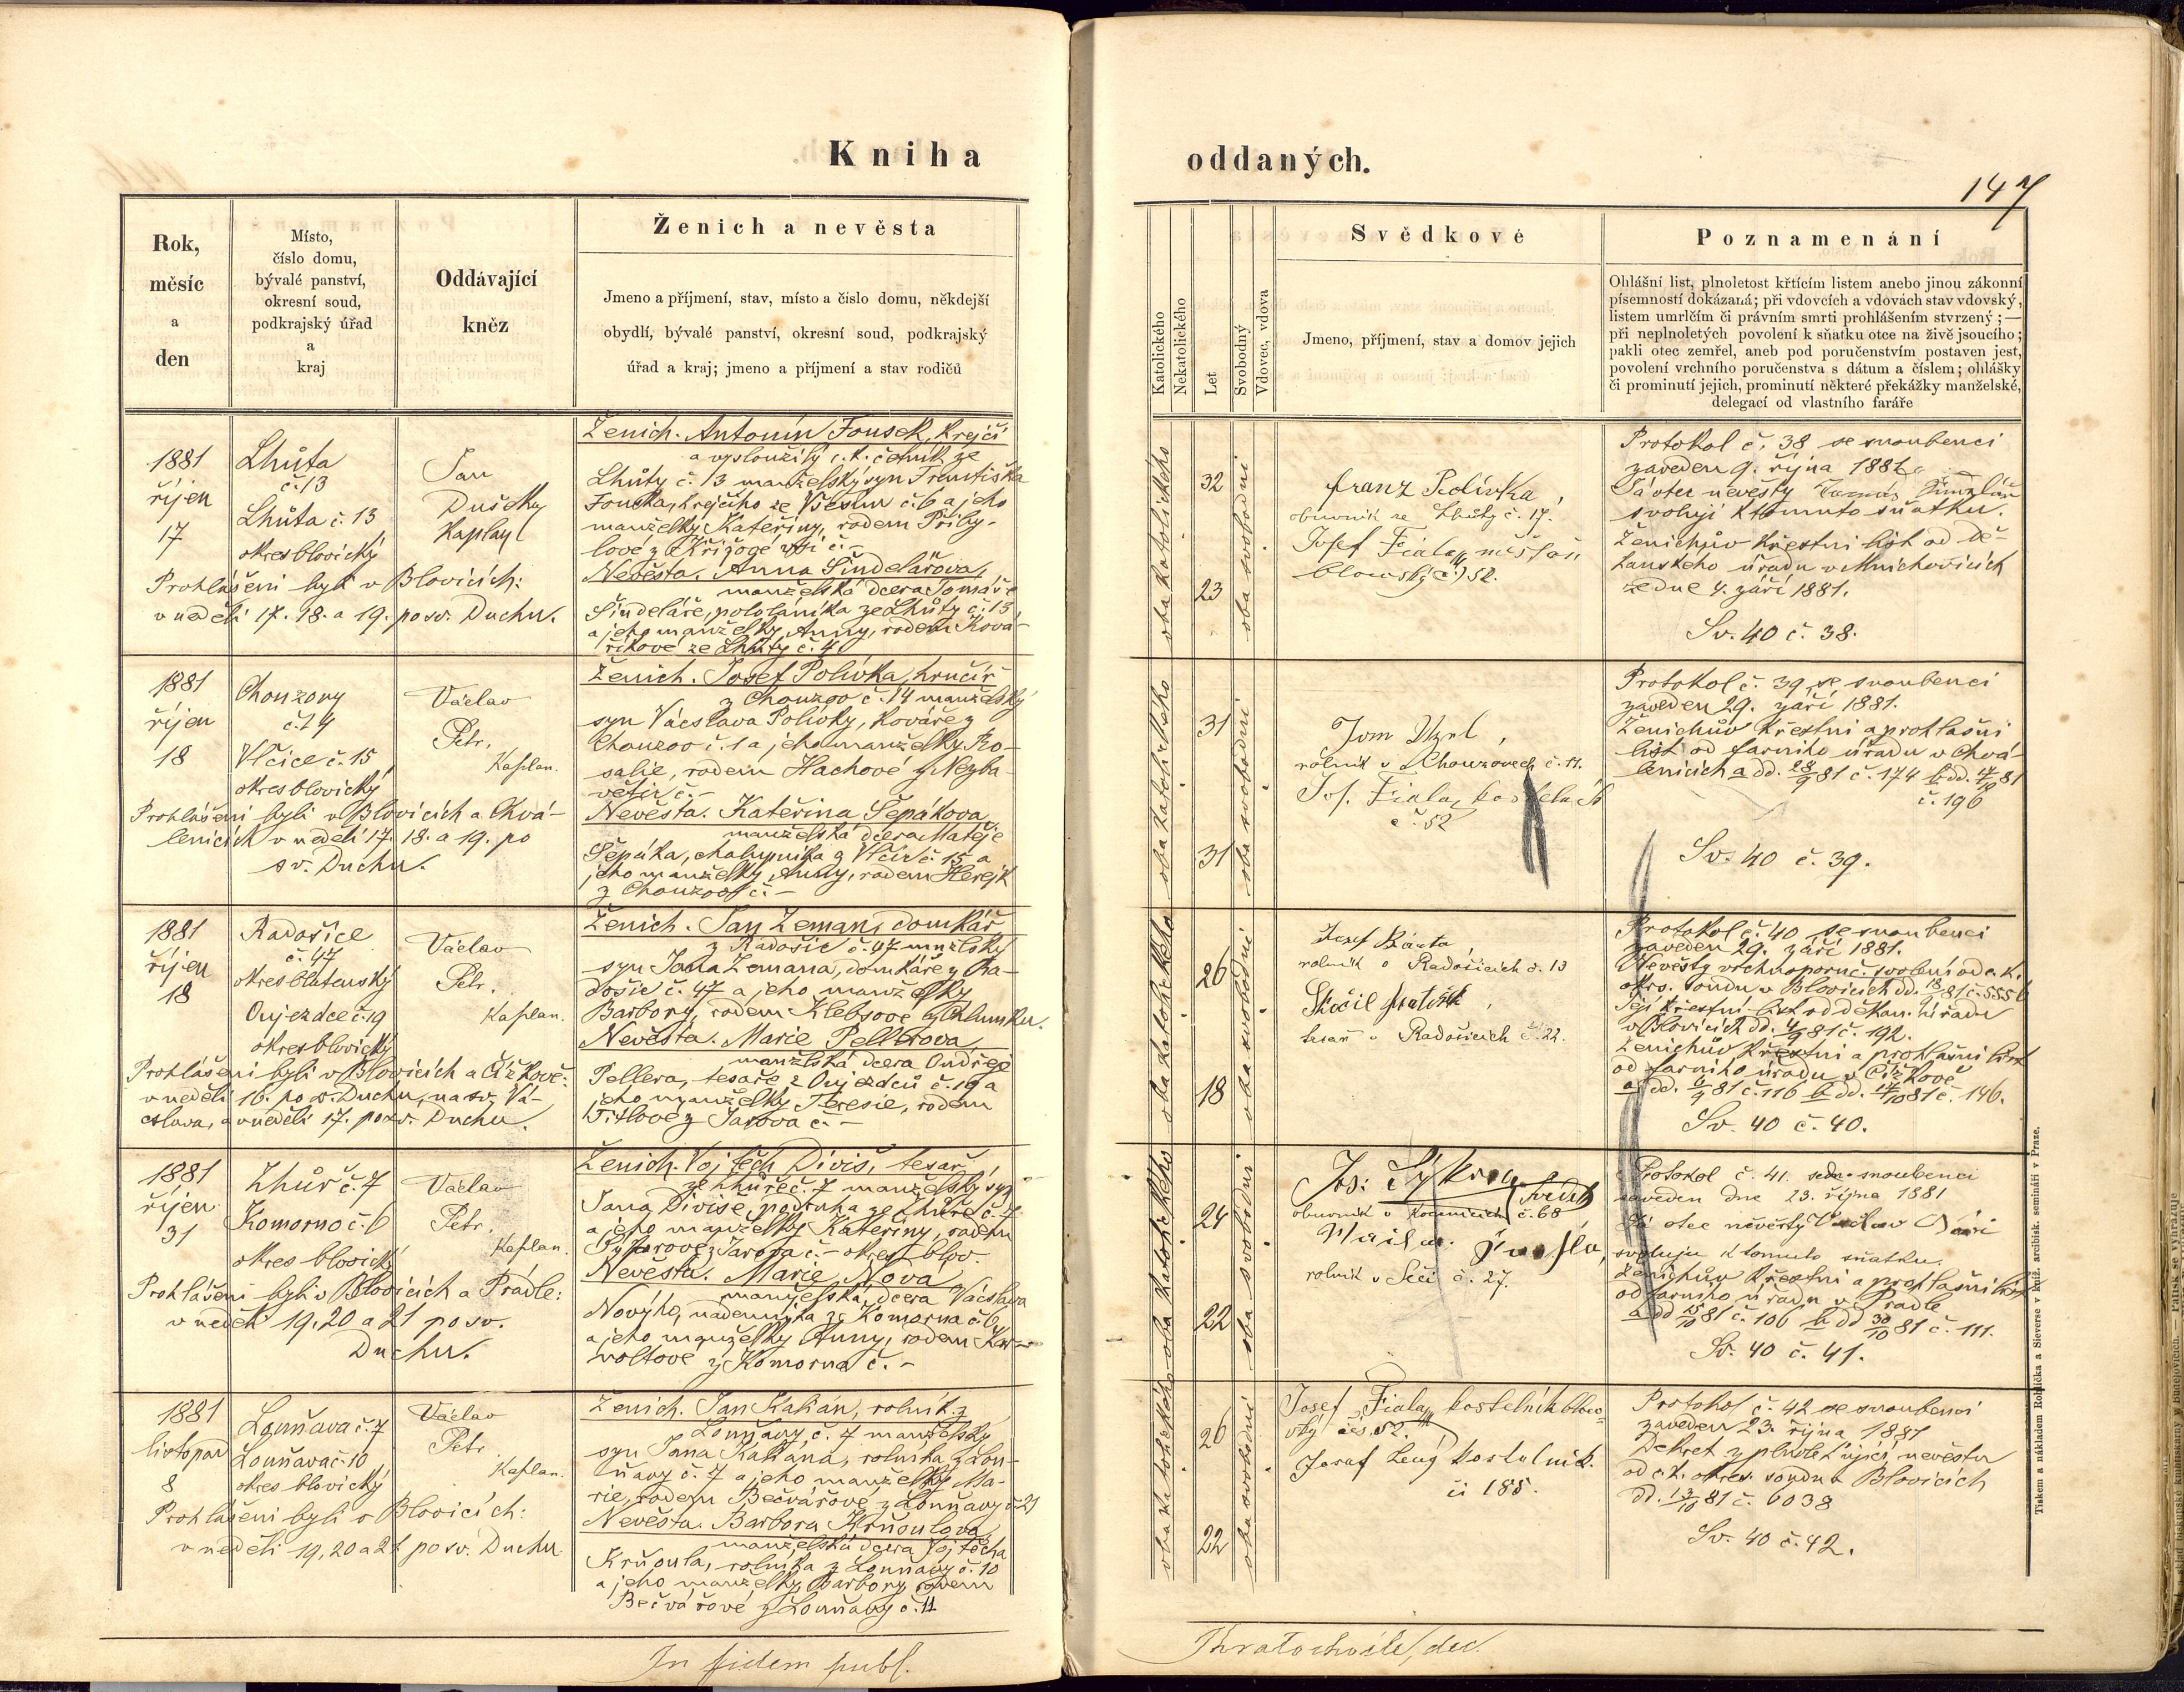 Kniha
oddaných.
147
Rok,
měsíc
a
den
Místo,
číslo domu,
bývalé panství,
okresní soud,
podkrajský úřad
a
kraj
Oddávající
kněz
Ženich a nevěsta
Jmeno a příjmení, stav, místo a číslo domu, někdejší
obydlí, bývalé panství, okresní soud, podkrajský
úřad a kraj; jmeno a příjmení a stav rodičů
Katolického
Nekatolického
Let
Svobodný
Vdovec, vdova
Svědkové
Jmeno, příjmení, stav a domov jejich
Poznamenání
Ohlášní list, plnoletost křtícím listem anebo jinou zákonní
písemností dokázaná; při vdovcích a vdovách stav vdovský,
listem umrlčím či právním smrti prohlášením stvrzený; —
při neplnoletých povolení k sňatku otce na živě jsoucího;
pakli otec zemřel, aneb pod poručenstvím postaven jest,
povolení vrchního poručenstva s dátum a číslem; ohlášky
či prominutí jejich, prominutí některé překážky manželské,
delegací od vlastního faráře
1881
říjen
17
Lhůta
č. 13
Lhůta č. 13
okres blovický
Jan
Dušek
Kaplan
Prohlášeni byli v Blovicích:
v neděli 17. 18. a 19. po sv. Duchu.
Ženich. Antonín Fousek, krejčí
a vysloužilý c. k. četník ze
Lhůty č. 13 manželský syn Františka
Fouska, krejčího ze Všesim č. 6 a jeho
manželky Kateřiny, rodem Přiby-
lové z Křížové vsi č. -
Nevěsta. Anna Šindelářova,
manželská dcera Tomáše
Šindeláře, pololáníka ze Lhůty č. 13
a jeho manželky Anny, rodem Ková-
říkové ze Lhůty č. 4
oba katolického
32
23
oba svobodni
Franz Polívka,
obuvník ze Lhůty č. 17.
Josef Fiala, měšťan
blovský č. 52.
Protokol č. 38 se snoubenci
zaveden 9. října 1881.
Já otec nevěsty Tomáš Šindelář
svoluji k tomuto sňatku.
Ženichův křestní list od dě-
kanského úřadu v Mnichovicích
ze dne 4. září 1881.
Sv. 40 č. 38.
1881
říjen
18
Chouzovy
č. 14
Vlčice č. 15
okres blovický
Václav
Petr,
Kaplan.
Prohlášeni byli v Blovicích a Chvá-
lenicích v neděli 17. 18. a 19. po
sv. Duchu.
Ženich. Josef Polívka, hrnčíř
z Chouzov č. 14 manželský
syn Václava Polívky, kováře z
Chouzov č. 1 a jeho manželky Ro-
salie, rodem Hachové z Nezba-
větic č. -
Nevěsta. Kateřina Šepákova
manželská dcera Matěje
Šepáka, chalupníka z Vlčic č. 15 a
jeho manželky Anny, rodem Herejk
z Chouzov č. -
oba katolického
31
31
oba svobodni
rolník v Chouzovech č. 11.
Jos. Fiala, kostelník
č. 52
Protokol č. 39 se snoubenci
zaveden 29. září 1881.
Ženichův křestní a prohlášní
list od farního úřadu v Chvá-
lenicích a dd. 28/9 81 č. 174 b dd. 17/10 81
č. 196
Sv. 40 č. 39.
1881
říjen
18
Radošice
č. 47
okres blatenský
Oujezdce č. 19
okres blovický
Václav
Petr.
Kaplan.
Prohlášeni byli v Blovicích a Čížkově:
v neděli 16. po sv. Duchu, na sv. Vá-
clava, a v neděli 17. po sv. Duchu.
Ženich. Jan Zeman, domkář
z Radošic č. 47 manželský
syn Jana Zemana, domkáře z Ra-
došic č. 47 a jeho manželky
Barbory, rodem Klebsové z Chlumku.
Nevěsta. Marie Pellerova
manželská dcera Ondřeje
Pellera, tesaře z Oujezdců č. 19 a
jeho manželky Teresie, rodem
Titlové z Jarova č. -
oba katolického
26
18
oba svobodni
Josef Bárta,
rolník v Radošicích č. 13
tesař v Radošicích č. 22.
Protokol č. 40 se snoubenci
zaveden 29. září 1881.
Nevěsty vrchnoporuč. svolení od c. k.
okrs. soudu v Blovicích dd. 18/9 81 č. 5556
Její křestní list od děkan. úřadu
v Blovicích dd. 4/9 81 č. 192.
Ženichův křestní a prohlášní list
od farního úřadu v Čížkově
a dd. 6/9 81 č. 116 b dd. 17/10 81 č. 146.
Sv. 40 č. 40.
1881
říjen
31
Zhůř č. 7
Komorno č. 6
okres blovický
Václav
Petr.
Kaplan.
Prohlášeni byli v Blovicích a Prádle:
v neděli 19, 20 a 21 po sv.
Duchu.
Ženich. Vojtěch Diviš, tesař
ze Zhůře č. 7 manželský syn
Jana Diviše, podruha ze Zhůře č. 7
a jeho manželky Kateřiny, rodem
Sýkorové z Jarova č. - okres blov.
Nevěsta. Marie Nova
manželská dcera Václava
Nového, nademníka ze Komorna č. 6,
a jeho manželky Anny, rodem Kar-
voltové z Komorna č. -
oba katolického
24
22
oba svobodni
Jos: Sýkora, svědek
obuvník v č. 68
rolník v Seči č. 27.
Protokol č. 41. se snoubenci
zaveden dne 23. října 1881
Já otec nevěsty Václav Nový
svoluju k tomuto sňatku.
Ženichův křestní a prohlášní list
od farního úřadu v Prádle
a dd 15/10 81 č. 106 b dd 30/10 81 č. 111.
Sv. 40 č. 41.
1881
listopad
8
Louňava č. 7
Louňava č. 10
okres blovický
Václav
Petr
Kaplan.
Prohlášeni byli v Blovicích:
v neděli 19, 20 a 21 po sv. Duchu
Ženich. Jan Kahán, rolník z
Louňavy č. 7 manželský
syn Jana Kahána, rolníka z Lou-
ňavy č. 7 a jeho manželky Ma-
rie, rodem Bečvářové z Louňavy č. 21
Nevěsta. Barbora Kršoulova
manželská dcera Vojtěcha
Kršoula, rolníka z Louňavy č. 10
a jeho manželky Barbory rodem
Bečvářové z Louňavy č. 11
oba katolického
26
22
oba svobodni
Josef Fiala, kostelník blov-
ský čís 52.
Josef Lang kostelník.
či 185.
Protokol č. 42 se snoubenci
zaveden 23. října 1881
Dekret zplnoletňující nevěstu
od c. k. okres. soudu v Blovicích
dd. 13/10 81 č. 6038
Sv. 40 č. 42.
In fidem publ.
Chratochvíle, dec.
Tiskem a nákladem Rohlíčka a Sieverse v kníž. arcibisk. semináři v Praze.